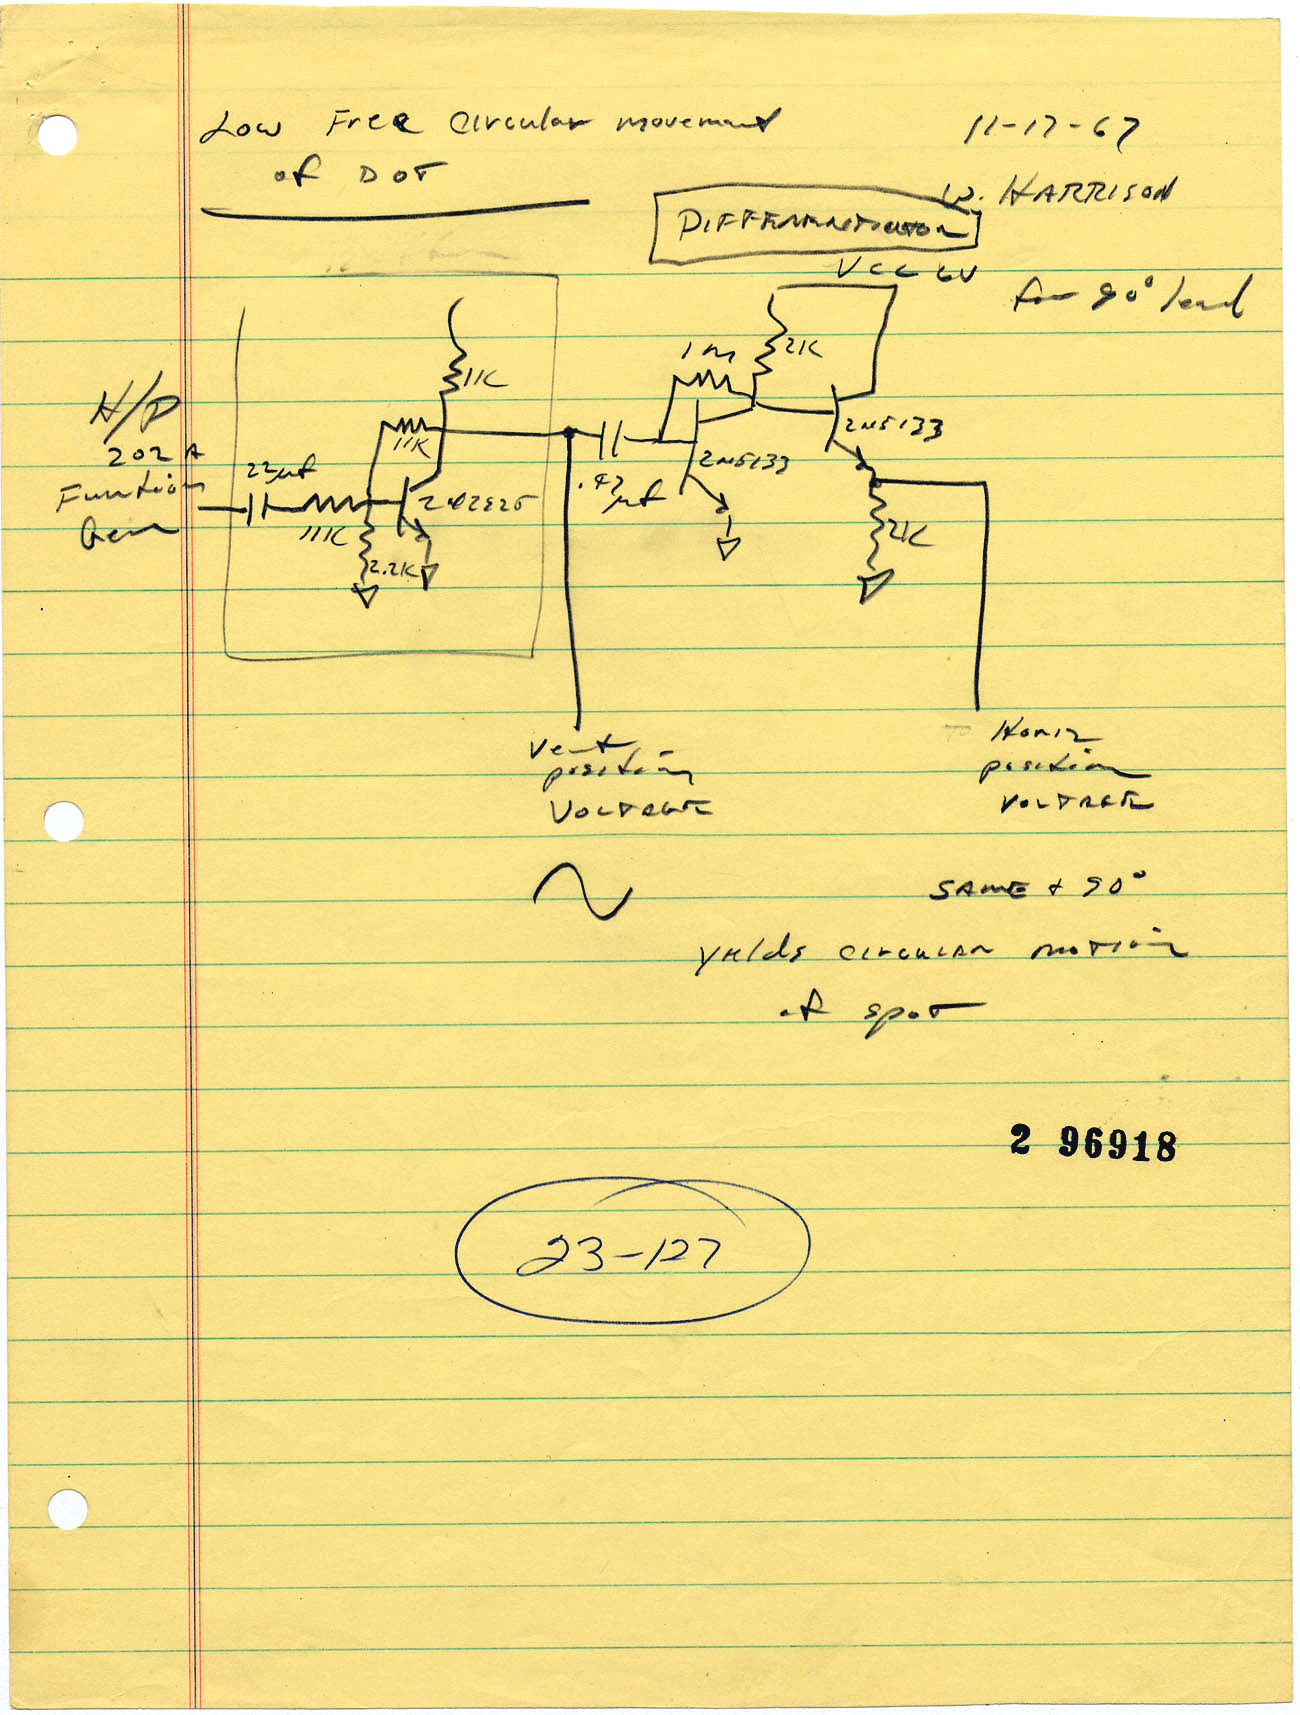 Low Free Circular movement
of DOT
11-17-67
W. HARRISON
DIFFERENTIATOR
VCC 6V
for 90° lead
H/P
202 A
Function
Gen
22μf
11K
2.2K
11K
11K
.47
μf
1m
2K
2N5133
2N5133
2K
Vert
position
VOLTAGE
TO Horiz
position
VOLTAGE
SAME + 90°
yields circular motion
of spot
2 96918
23-127